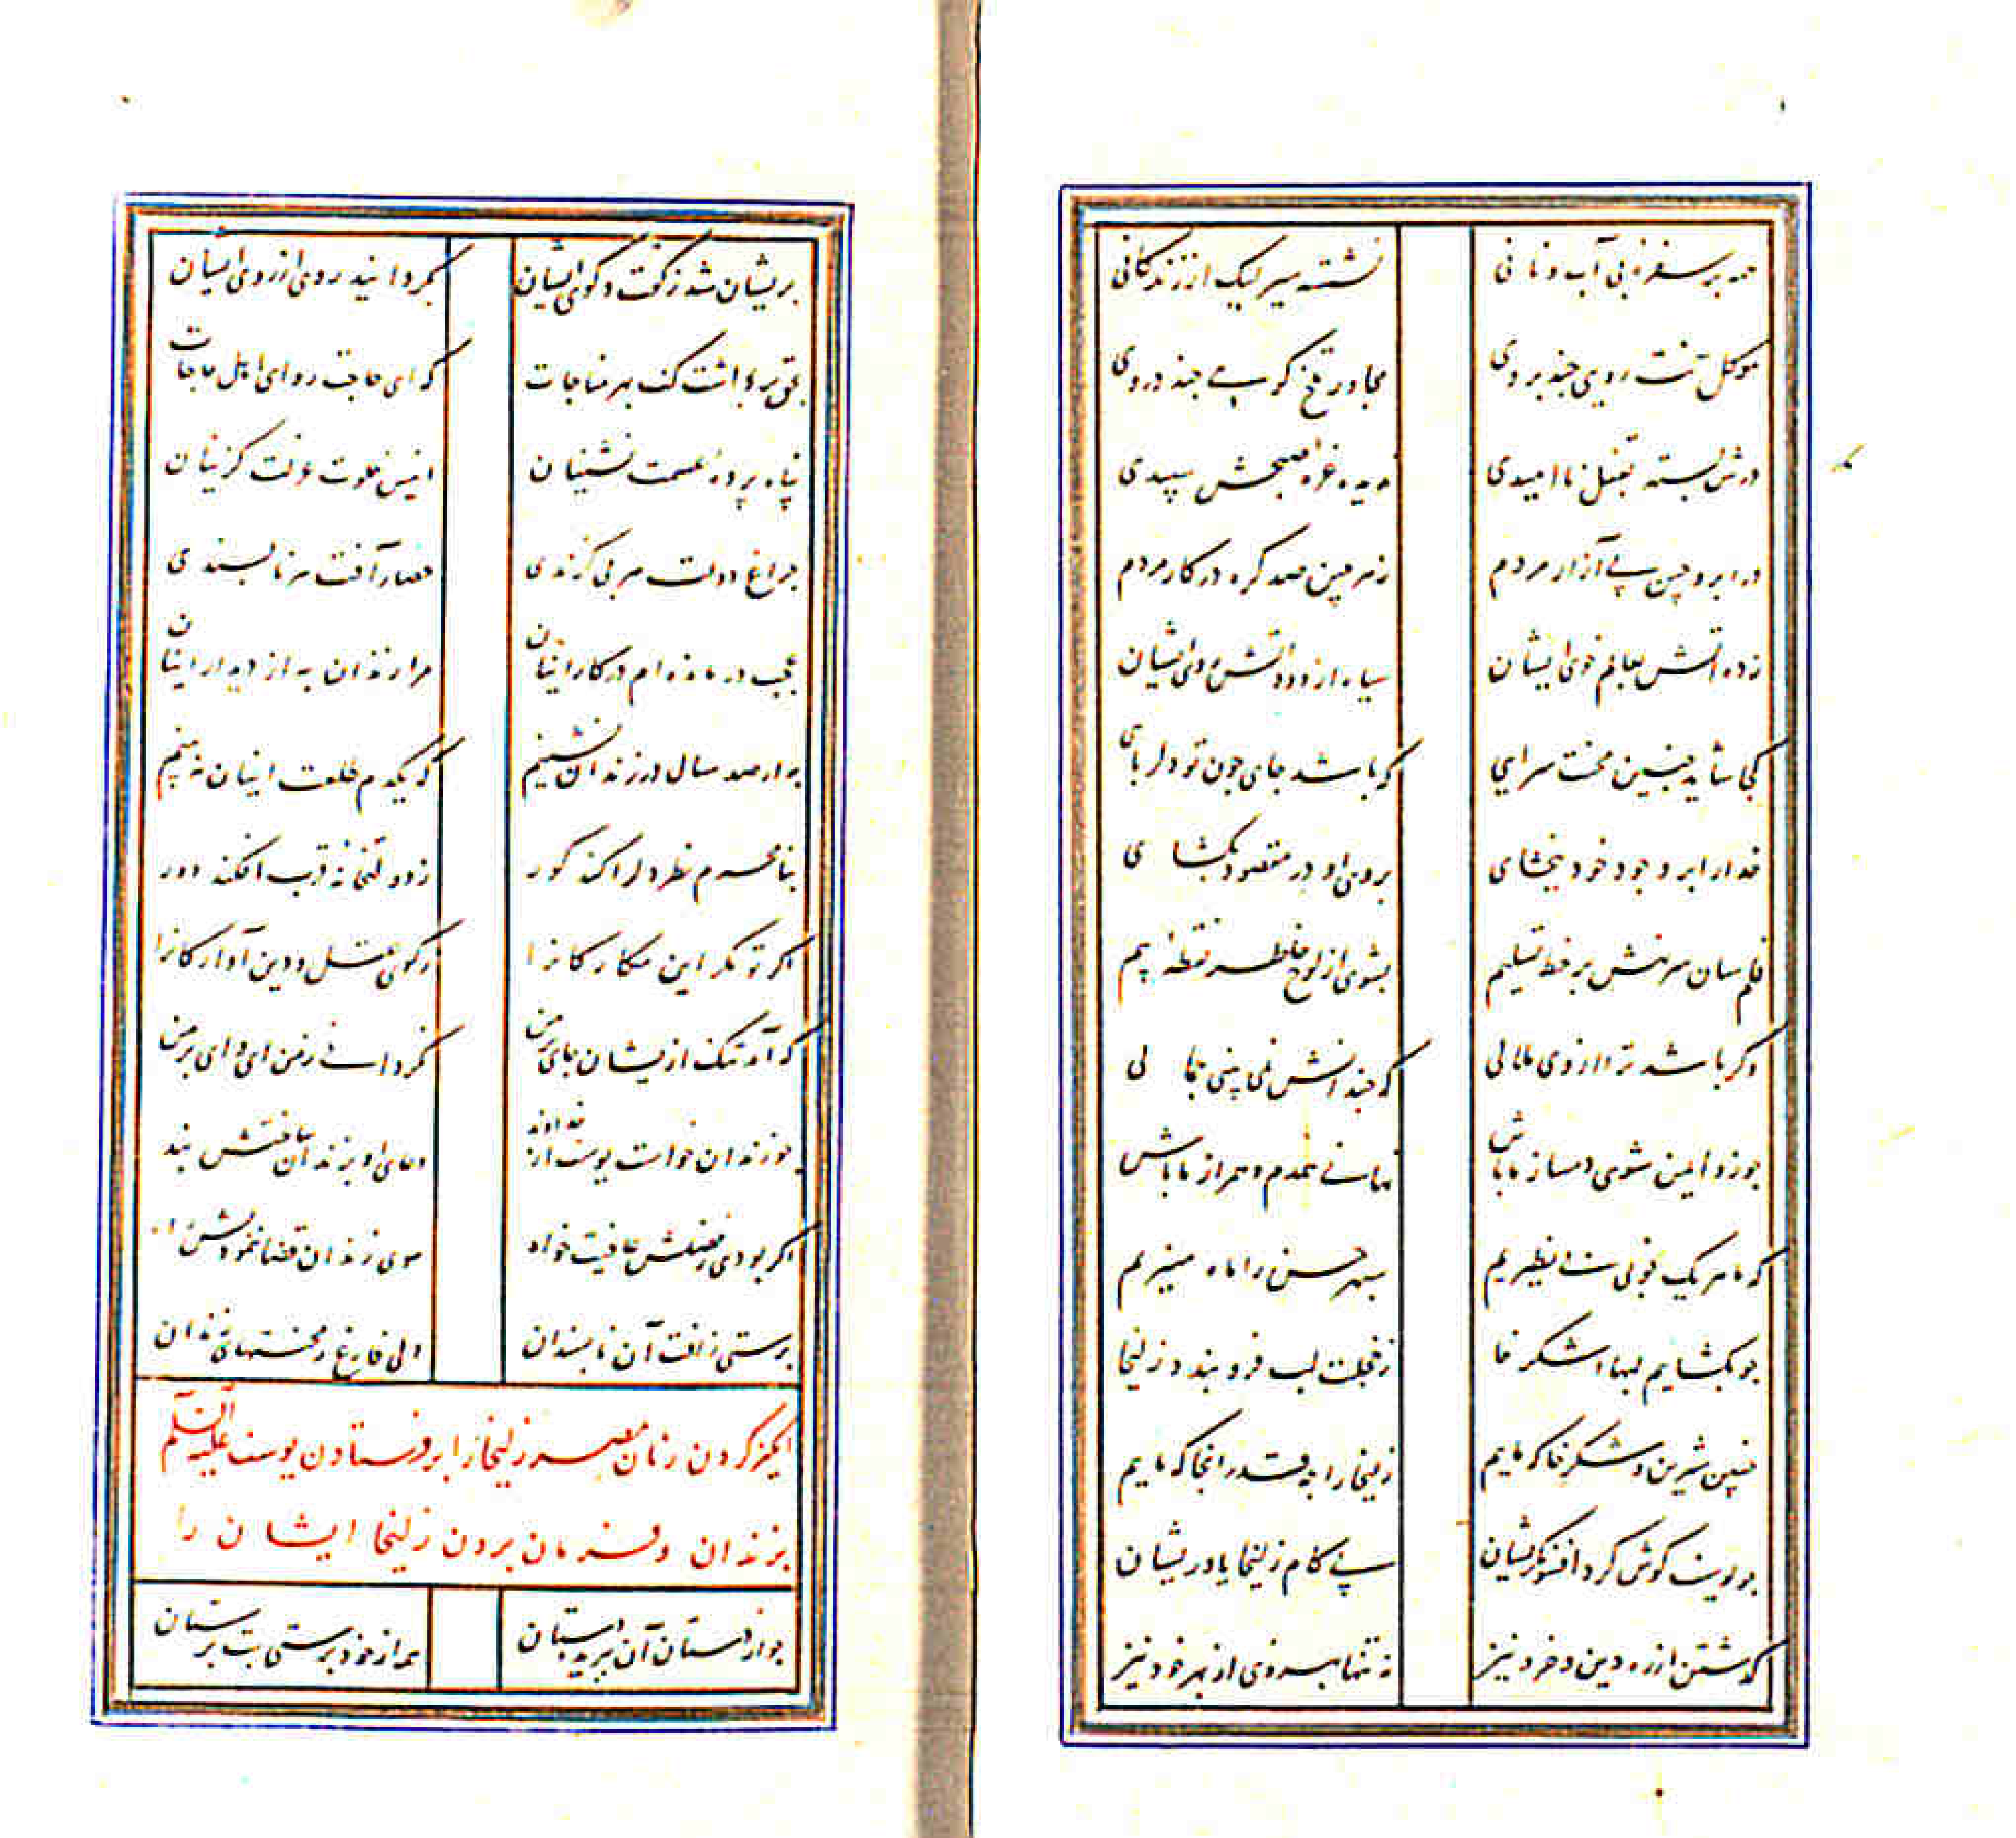 همه بر سفره بی آب و نانی نشسته سیر لیک از زندکانی
موکل تنت رویی چند بروی مجاور تلخ کویی چند دروی
درش بسته بقفل ناامیدی ندیده غره صبحش سپیدی
در ابرو چین پی آزار مردم زهر چین صد کره در کار مردم
زده آتش بعالم خوی ایشان سیاه از دود آتش روی ایشان
کجا شاید چنین محنت سرایی که باشد جای چون تو دلربای
خدا را بر وجود خود ببخشای بروی او در مقصود بکشای
قلم سان سر نهش بر خط تسلیم بشوی از لوح خاطر نقطه بیم
وکر باشد ترا از وی ملالی که چندانش نمی بینی جمالی
چو زو ایمن شوی دمساز ما باش نهانی همدم و همراز ما باش
که ما هر یک بخوبی بی نظیریم سپهر حسن را ماه منیریم
چو بکشاییم لبها شکرخا ز خجلت لب فرو بندد زلیخا
چنین شیرین و شکرخا که ماییم زلیخا را چه قدر آنجا که ماییم
چو یوسف کوش کرد افسونکریشان پی کام زلیخا یاوریشان
کذشتن از ره دین و خرد نیز نه تنها بهر وی از بهر خود نیز
بریشان شد ز کفت و کوی ایشان بکردانید روی از روی ایشان
بحق برداشت کف بهر مناجات که ای حاجت روای اهل حاجات
پناه پرده عصمت نشینان انیس خلوت عزلت کزینان
چراغ دولت هر بی کزندی حصار آفت هر ناپسندی
عجب درمانده ام در کار اینان مرا زندان به از دیدار اینان
به ار صد سال در زندان نشینم که یکدم طلعت اینان نه بینم
بنامحرم نظر دل را کند کور ز دولتخانه قرب افکند دور
اکر تو مکر این مکارکانرا ز کوی عقل و دین آوارکانرا
که آمد تنک ازیشان جای بر من نکردانی ز من ای وای بر من
چو زندان خواست یوسف از خداوند دعای او بزندان ساختش بند
اکر بودی ز فضلش عافیت خواه سوی زندان قضا ننمودیش راه
برستی ز آفت آن ناپسندان دلی فارغ ز محنتهای زندان
انکیز کردن زنان مصر زلیخا را بر فرستادن یوسف علیه السلم
بزندان و فرمان بردن زلیخا ایشان را
چو از دستان آن ببریده دستان همه از خود پرستی بت پرستان